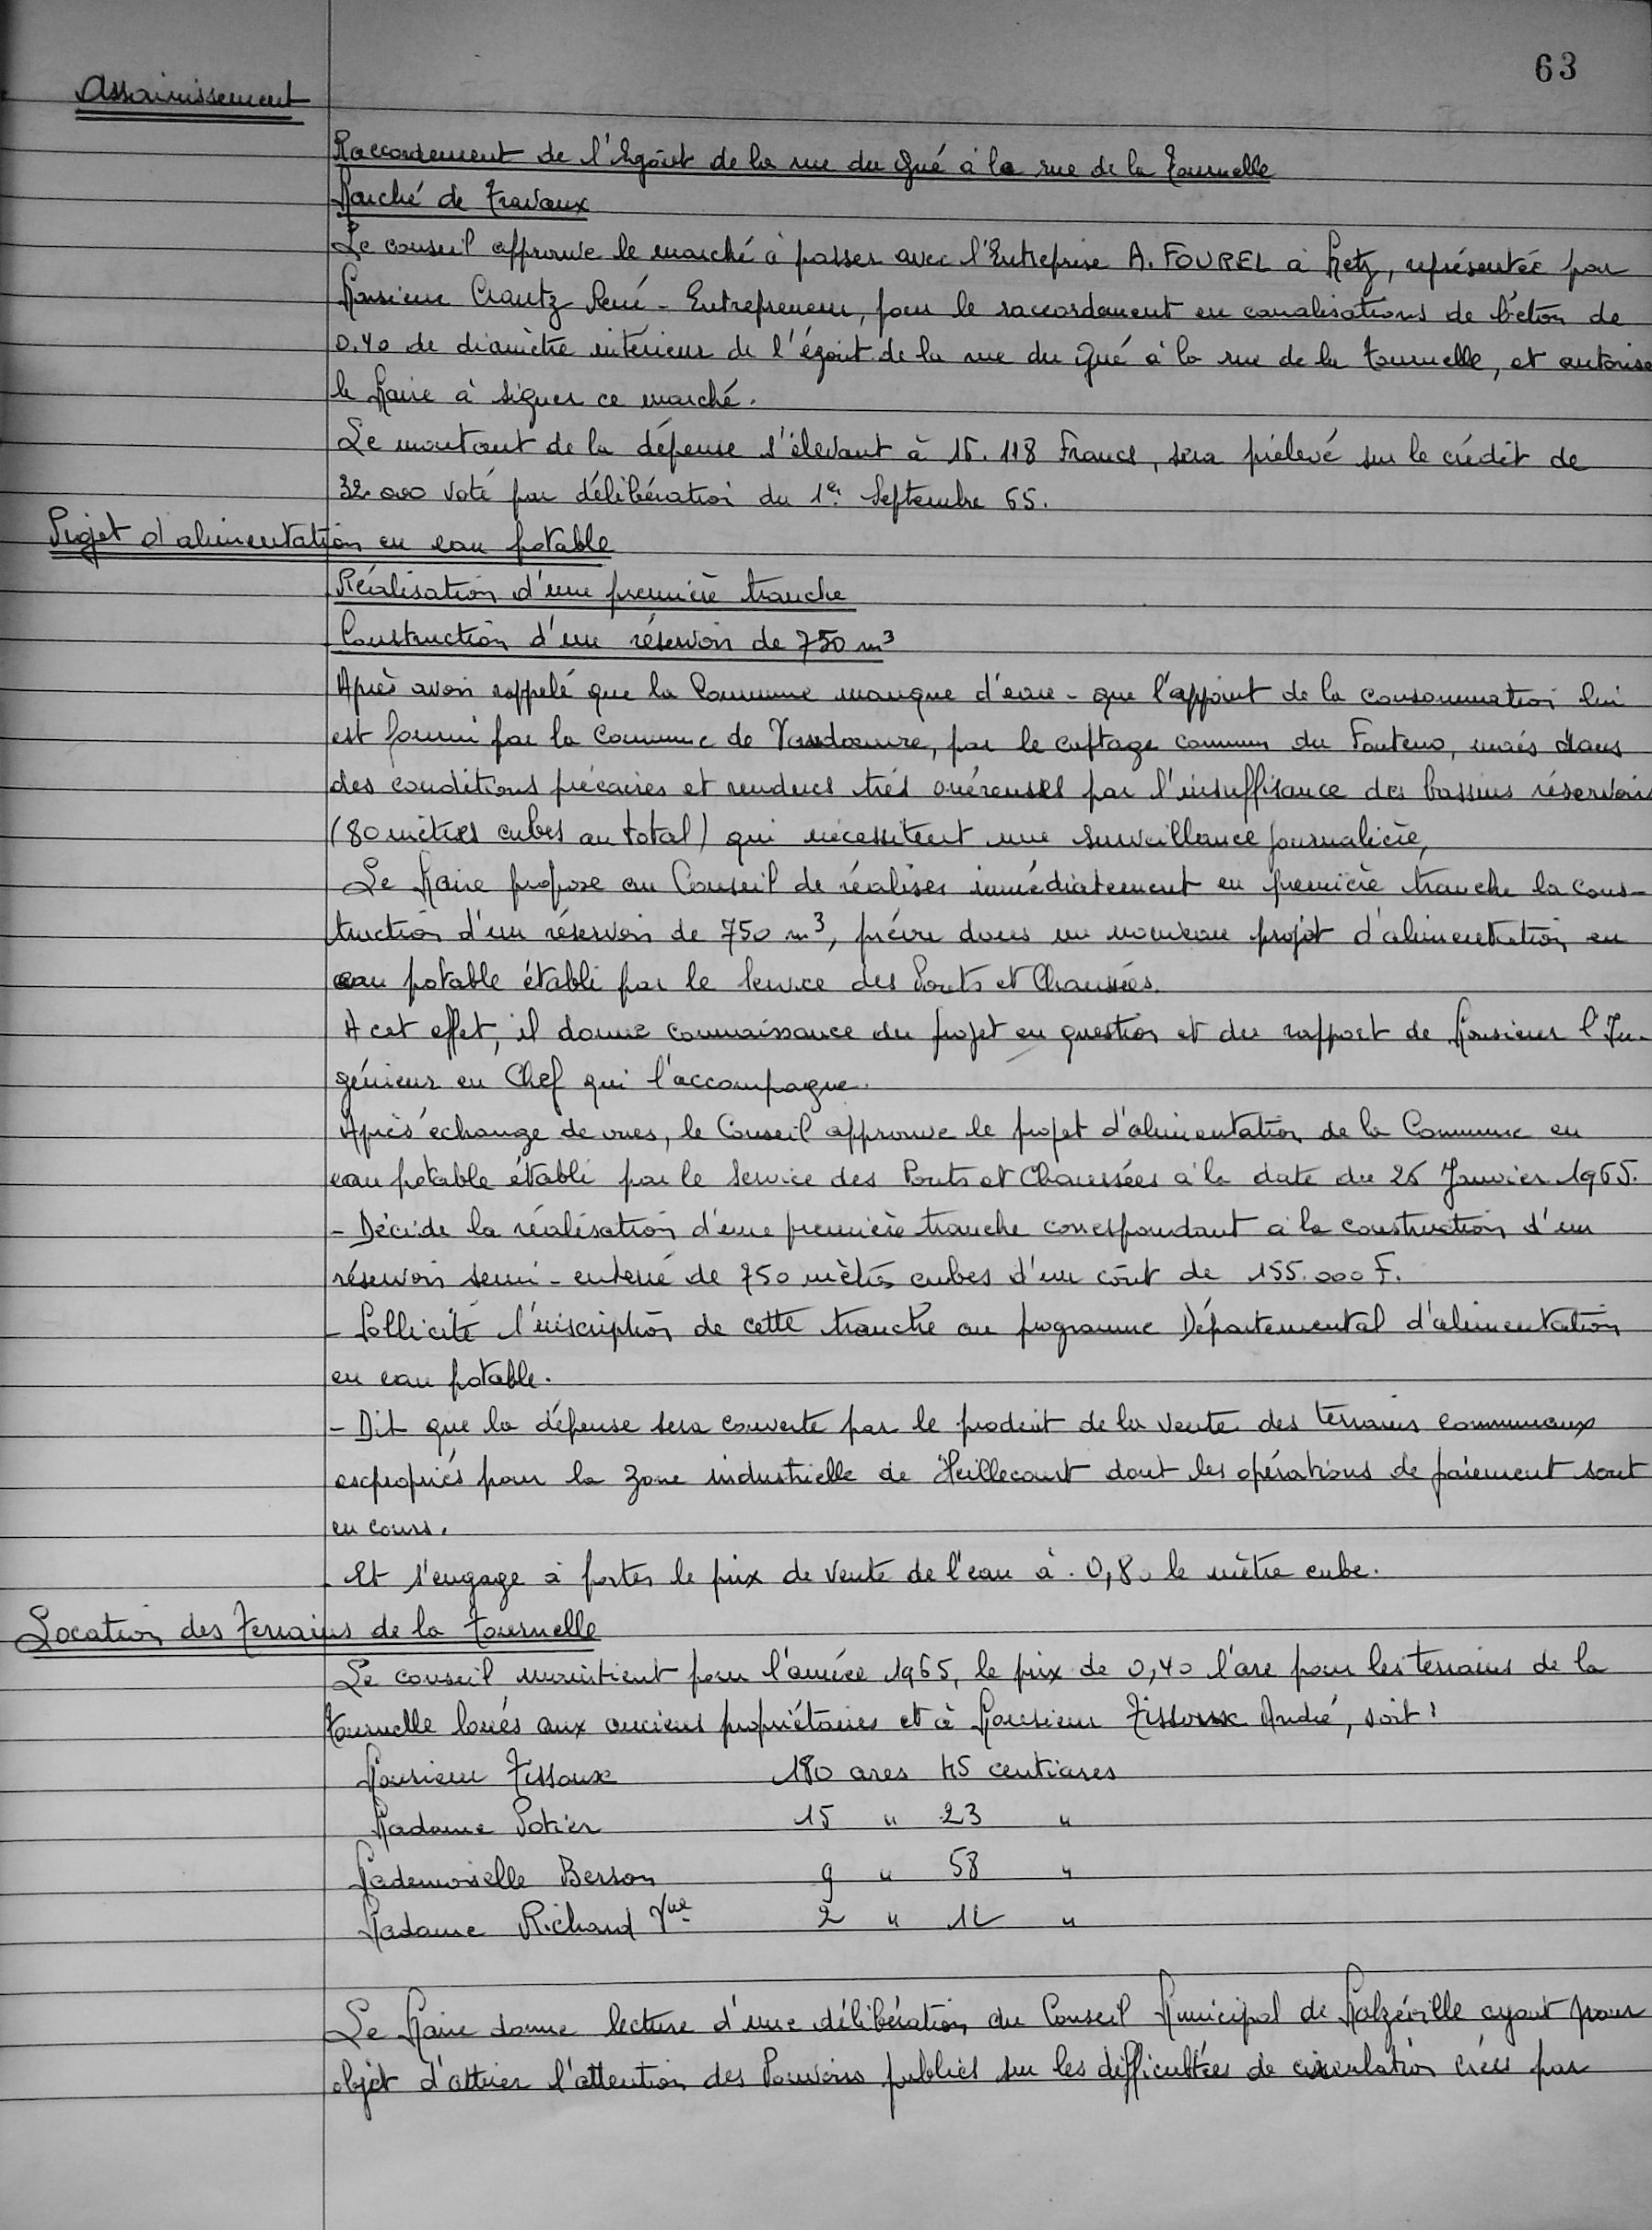 63
Assainissement
Raccordement de l'Egoût de la rue du Gué à la rue de la Tournelle
Marché de Travaux
Le conseil approuve le marché à passer avec l'Entreprise A. FOUREL à Metz, représentée par
Monsieur Crantz René - Entrepreneur, pour le raccordement en canalisations de béton de
0.40 de diamètre intérieur de l'égout de la rue du Gué à la rue de la Tournelle, et autorise
le Maire à signer ce marché.
Le montant de la dépense s'élevant à 15.118 Francs, sera prélevé sur le crédit de
32.000 voté par délibération du 1er Septembre 65.
Projet d'alimentation en eau potable
Réalisation d'une première tranche
Construction d'un réservoir de 750 m³
Après avoir rappelé que la Commune manque d'eau - que l'appoint de la consommation lui
est fourni par la Commune de Vandoeuvre, par le captage commun du Fonteno, mais dans
des conditions précaires et rendues très onéreuses par l'insuffisance des bassins réservoirs
(80 mètres cubes au total) qui nécessitent une surveillance journalière,
Le Maire propose au Conseil de réaliser immédiatement en première tranche la cons-
truction d'un réservoir de 750 m³, prévu dans un nouveau projet d'alimentation en
eau potable établi par le Service des Ponts et Chaussées.
A cet effet, il donne connaissance du projet en question et du rapport de Monsieur l'In-
génieur en Chef qui l'accompagne.
Après échange de vues, le Conseil approuve le projet d'alimentation de la Commune en
eau potable établi par le Service des Ponts et Chaussées à la date du 26 Janvier 1965.
- Décide la réalisation d'une première tranche correspondant à la construction d'un
réservoir semi-enterré de 750 mètres cubes d'un coût de 155.000 F.
- Sollicite l'inscription de cette tranche au programme Départemental d'alimentation
en eau potable.
- Dit que la dépense sera couverte par le produit de la vente des terrains communaux
expropriés pour la zone industrielle de Heillecourt dont les opérations de paiement sont
en cours.
- Et s'engage à porter le prix de vente de l'eau à 0,80 le mètre cube.
Location des Terrains de la Tournelle
Le conseil maintient pour l'année 1965, le prix de 0,40 l'are pour les terrains de la
Tournelle loués aux anciens propriétaires et à Monsieur Tissoux André, soit :
Monsieur Tissoux 180 ares 45 centiares
Madame Potier 15 " 23 "
Mademoiselle Berson 9 " 58 "
Madame Richard Vve 2 " "
Le Maire donne lecture d'une délibération du Conseil Municipal de Malzéville ayant pour
objet d'attirer l'attention des Pouvoirs publics sur les difficultées de circulation créés par